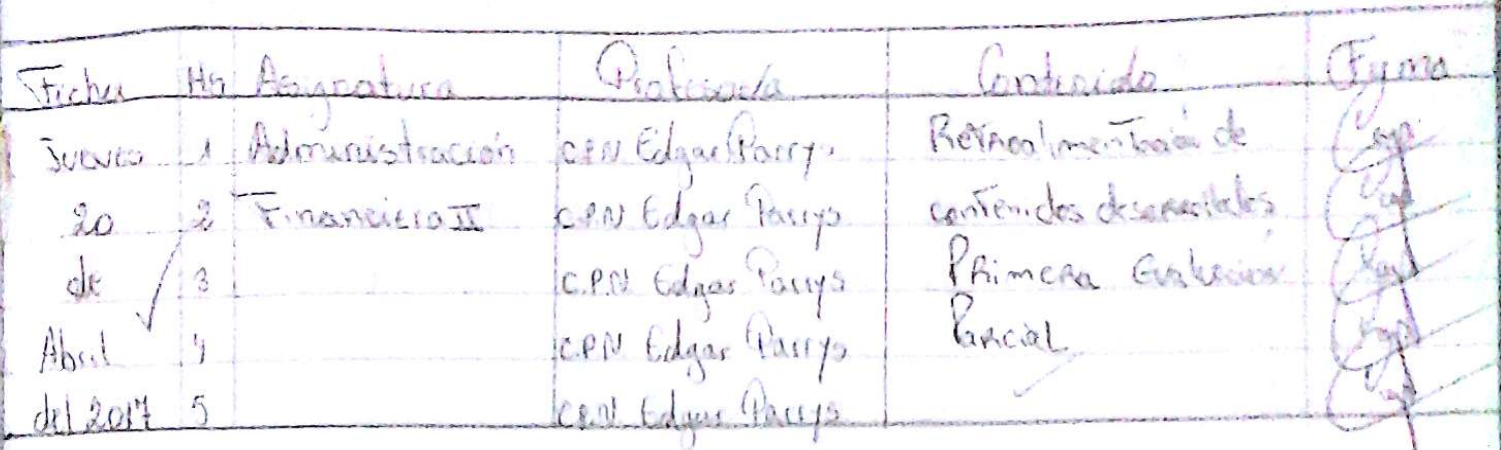 Fecha Hs Asignatura Profesor/a Contenido Firma
Jueves 1 Administración C.P.N Edgar Parrys Retroalimentación de
20 2 Financiera II C.P.N Edgar Parrys contenidos desarrollados
de 3 C.P.N Edgar Parrys Primera Evaluación
Abril 4 C.P.N Edgar Parrys Parcial
del 2017 5 C.P.N Edgar Parrys